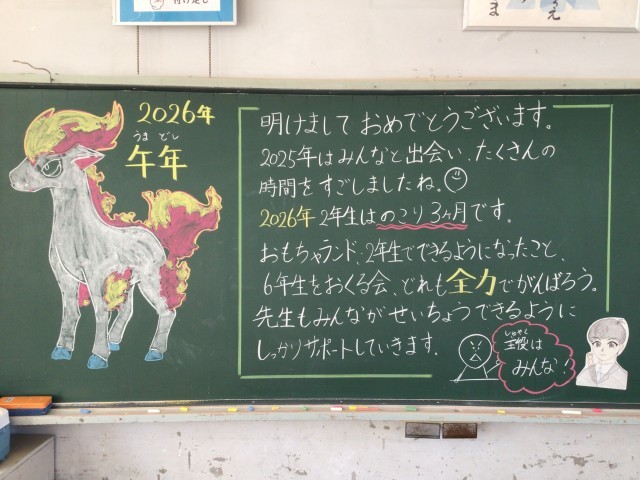 2026年
うま どし
午年
明けまして おめでとうございます。
2025年はみんなと出会い、たくさんの
時間をすごしましたね。
2026年 2年生は のこり3ヶ月です。
おもちゃランド、2年生でできるようになったこと、
6年生をおくる会、どれも全力でがんばろう。
先生もみんながせいちょうできるように
しっかりサポートしていきます。
しゅやく
主役は
みんな!